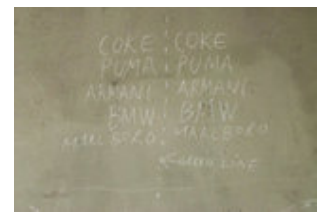 COKE : COKE
PUMA : PUMA
ARMANI : ARMANI
BMW : BMW
MARLBORO : MARLBORO